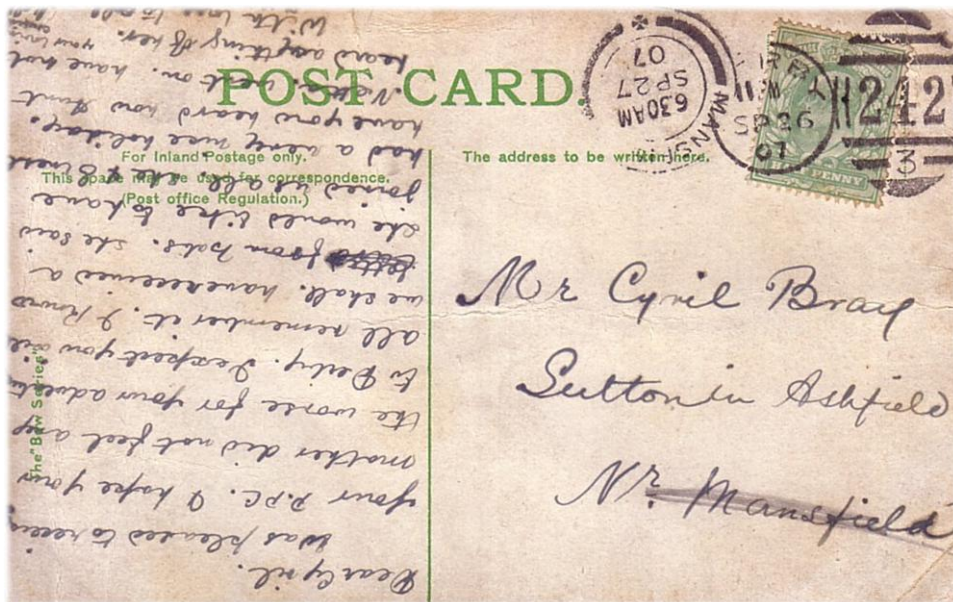 POST CARD.
For Inland Postage only.
This space may be used for correspondence.
(Post office Regulation.)
The address to be written here.
The "B&W Series"
MANSFI
6.30AM
SP 27
07
DERBY
SP 26
07
242
3
PENNY
Mr Cyril Bray
Sutton in Ashfield
Nr. Mansfield
Dear Cyril.
Was pleased to receive
your P.P.C. I hope your
mother did not feel any
the worse for your
to Derby. I expect you all
all remember it. I know
we shall. have received a
letter from Pats. she said
she would like to have
joined us all. she &
had a very nice holiday.
have you heard how Aunt
is getting on. have not
heard anything of her.
With love to all